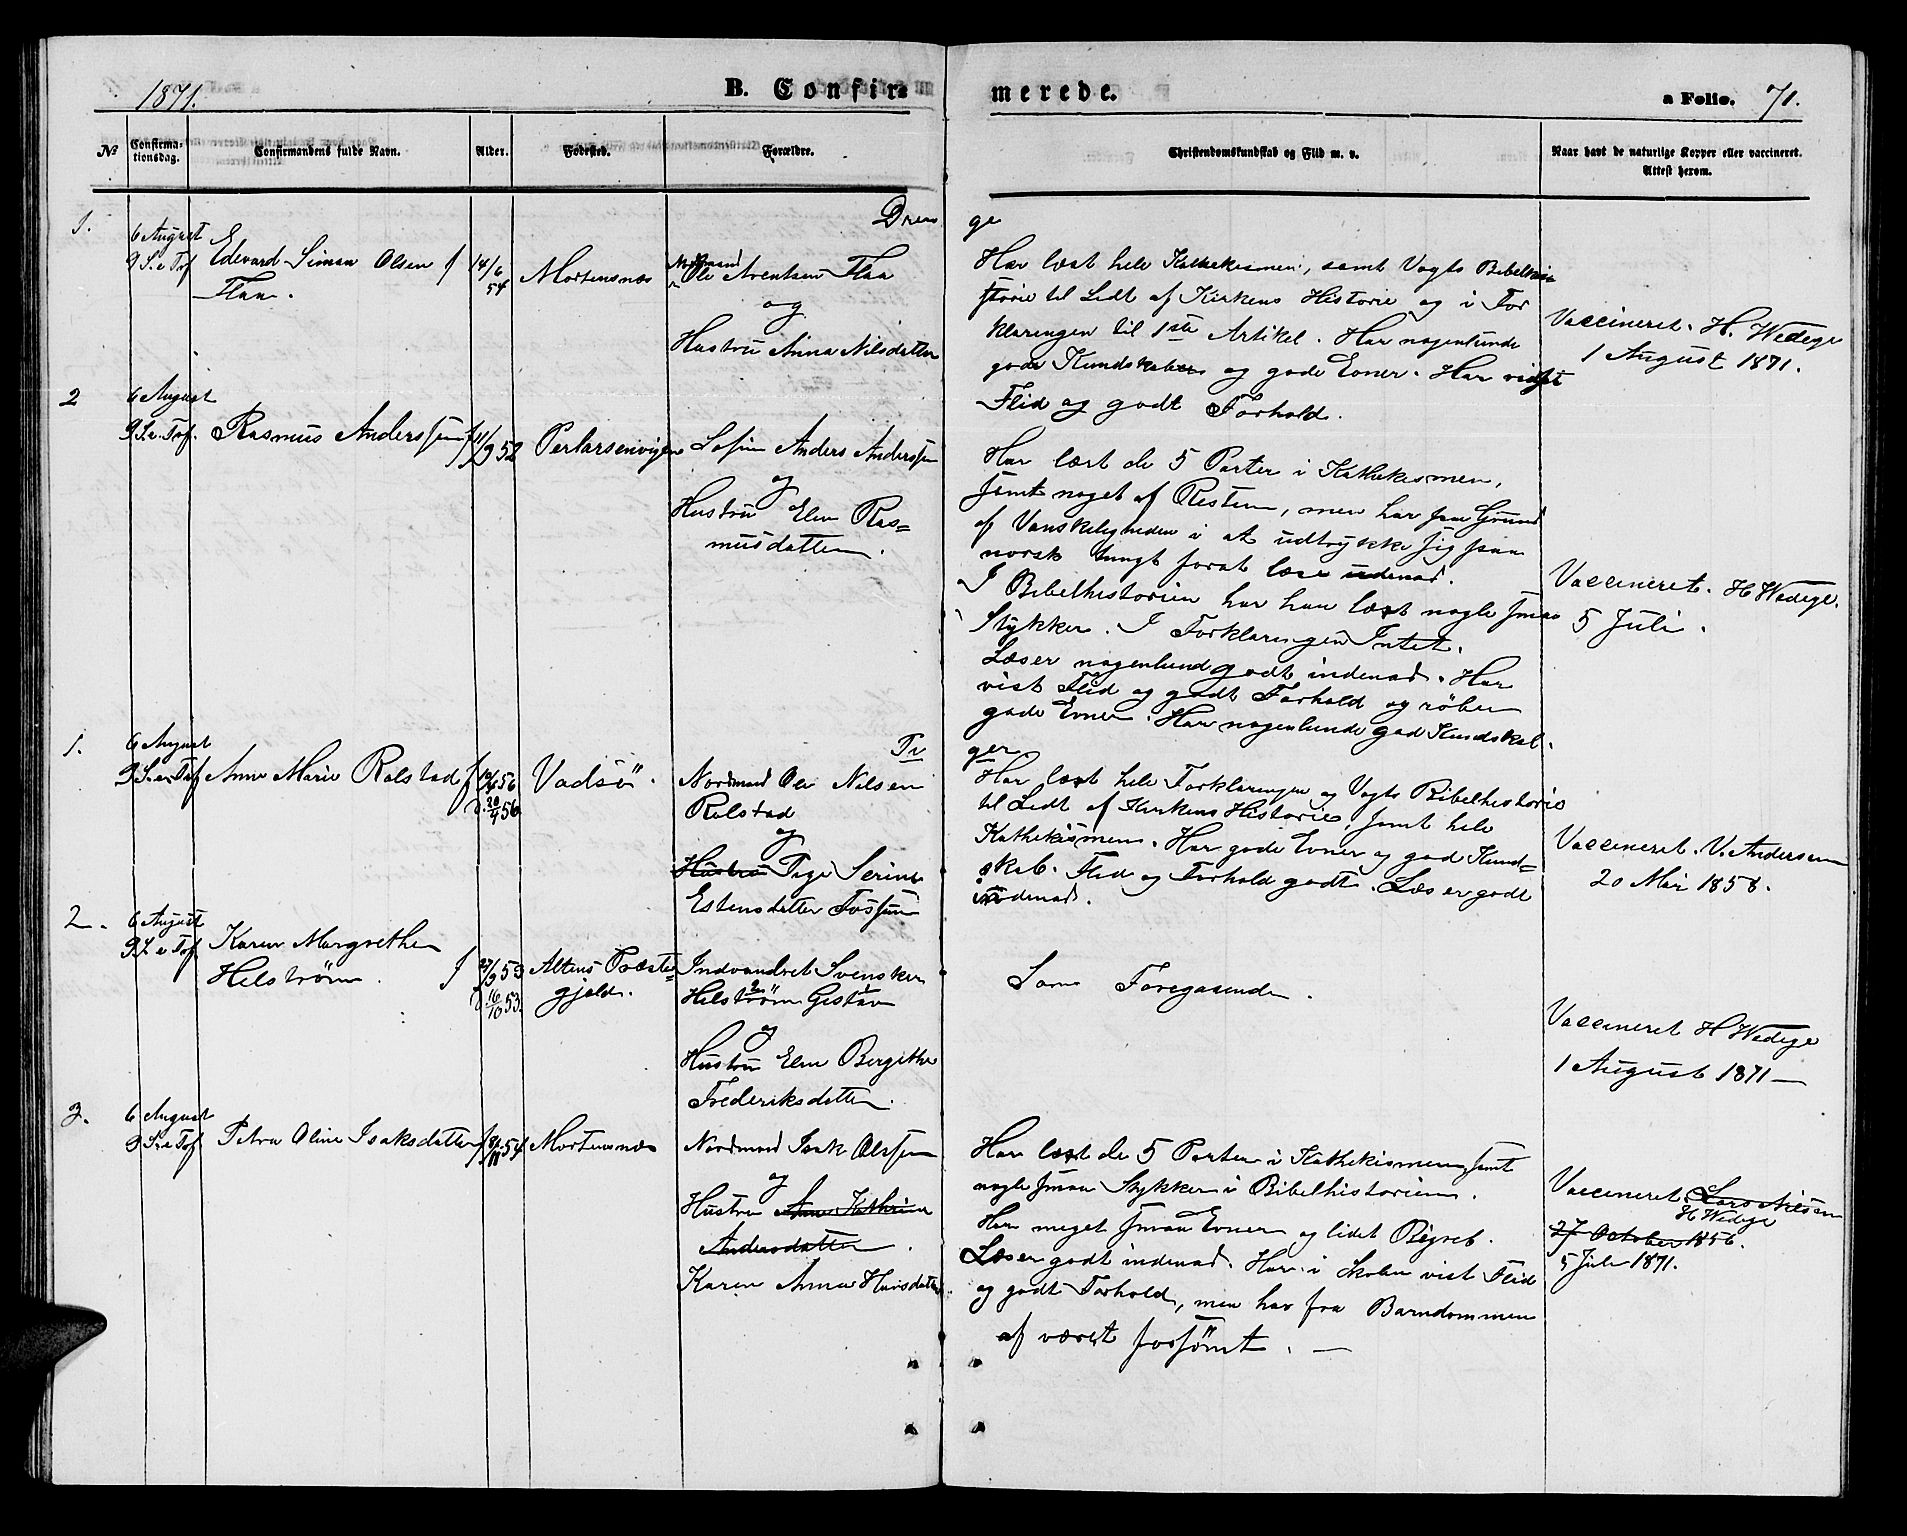 1871.
B. Confir=
merede.
a Folio. 71.
No
Confirma-
tionsdag.
Confirmandens fulde Navn.
Alder.
Födested.
Forældre.
Christendomskundskab og Flid m. v.
Naar havt de naturlige Kopper eller vaccineret.
Attest herom.
Dren
ge
1.
6 August
9 S. e Tref
Edevard Simon Olsen f
Flaa.
14/6
54
Mortensnæs
Nordmand
Ole Arentsen Flaa
og
Hustru Anna Nilsdatter
Har læst hele Kathekismen, samt Vogts Bibelhi-
storie til Lidt af Kirkens Historie og i For
klaringen til 1ste Artikel. Har nogenlunde
gode Kundskaber og gode Evner. Har vist
Flid og godt Forhold.
Vaccineret. H. Wedege
1 August 1871.
2
6 August
9 S. e. Tref.
Rasmus Anderssen f
11/9 52
Perlarsenvigen
Lapin Anders Anderssen
og
Hustru Elen Ras=
musdatter.
Har læst de 5 Parter i Kathekismen,
samt noget af Resten, men har paa Grund
af Vanskeligheden i at udtrykke sig paa
norsk tungt forat læse udenad.
I Bibelhistorien har han læst nogle smaa
Stykker. I Forklaringen Intet.
Læser nogenlund godt indenad. Har
vist Flid og godt Forhold og røber
gode Evner. Har nogenlunde god Kundskab.
Vaccineret. H Wedege.
5 Juli.
Pi
ger
1.
6 August
9 S. e. Tref
Anne Marie Rolstad f
56
d. 20/4 56
Vadsö.
Nordmand Ole Nilsen
Rolstad
og
Hustru Pige Serine
Estensdatter Fossum
Har læst hele Forklaringen og Vogts Bibelhistorie
til Lidt af Kirkens Historie, samt hele
Kathekismen. Har gode Evner og god Kund=
skab. Flid og Forhold godt. Læser godt
indenad.
Vaccineret. V. Andersen
20 Mai 1858.
2.
6 August
9 S. e Tref
Karen Margrethe
Helström. f
27/9 53
d. 16/10 53.
Altens Præste=
gjeld.
Indvandret Svensker
Helström Gustav
og
Hustru Elen Bergithe
Frederiksdatter.
Som Foregaaende.
Vaccineret H Wedege
1 August 1871 —
3.
6 August
9 S. e Tref
Petra Oline Isaksdatter f
8/11 54
Mortensnæs
Nordmand Isak Olssen
og
Hustru Anne Kathrine
Andersdatter.
Karen Anna Hansdatter.
Har læst de 5 Parter i Kathekismen, samt
nogle smaa Stykker i Bibelhistorien.
Har meget smaa Evner og lidet Begreb.
Læser godt indenad. Har i Skolen vist Flid
og godt Forhold, men har fra Barndommen
af været forsömt. —
Vaccineret. Lars Nilsen
H Wedege
27 October 1856.
5 Juli 1871.